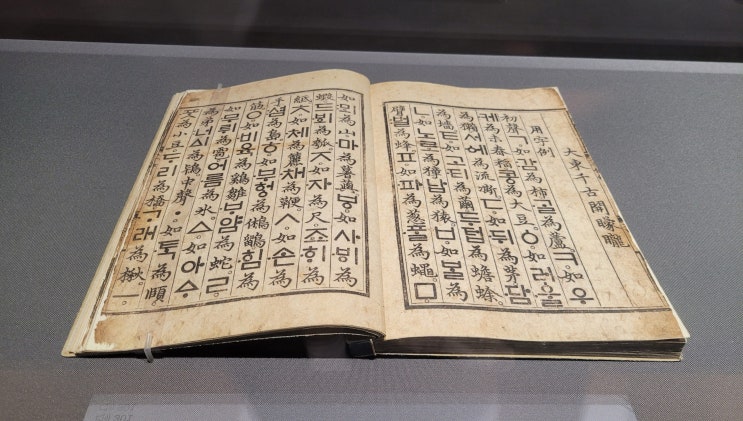 大東千古開朦朧
用字例
初聲ㄱ。如감為柿。ᄀᆞᆯ為蘆。ㅋ。如우
케為未舂稻。콩為大豆。ㆁ。如러ᅌᅮᆯ
為獺。서에為流凘。ㄷ。如뒤為茅。담
為墻。ㅌ。如고티為繭。두텁為蟾蜍。
ㄴ。如노로為獐。납為猿。ㅂ。如ᄇᆞᆯ為
臂。벌為蜂。ㅍ。如파為葱。ᄑᆞᆯ為蠅。ㅁ。
如뫼為山。마為薯藇。ㅸ。如사ᄫᅵ為
蝦。드ᄫᅴ為瓠。ㅈ。如자為尺。죠ᄒᆡ為
紙。ㅊ。如체為籭。채為鞭。ㅅ。如손為
手。셤為島。ㅎ。如부헝為鵂鶹。힘為
筋。ㅇ。如비육為鷄雛。ᄇᆞ얌為蛇。ㄹ。
如무뤼為雹。어름為氷。ㅿ。如아ᅀᆞ
為弟。너ᅀᅵ為鴇。中聲ㆍ。如ᄐᆞᆨ為頤。
ᄑᆞᆺ為小豆。ᄃᆞ리為橋。ᄀᆞ래為楸。ㅡ。